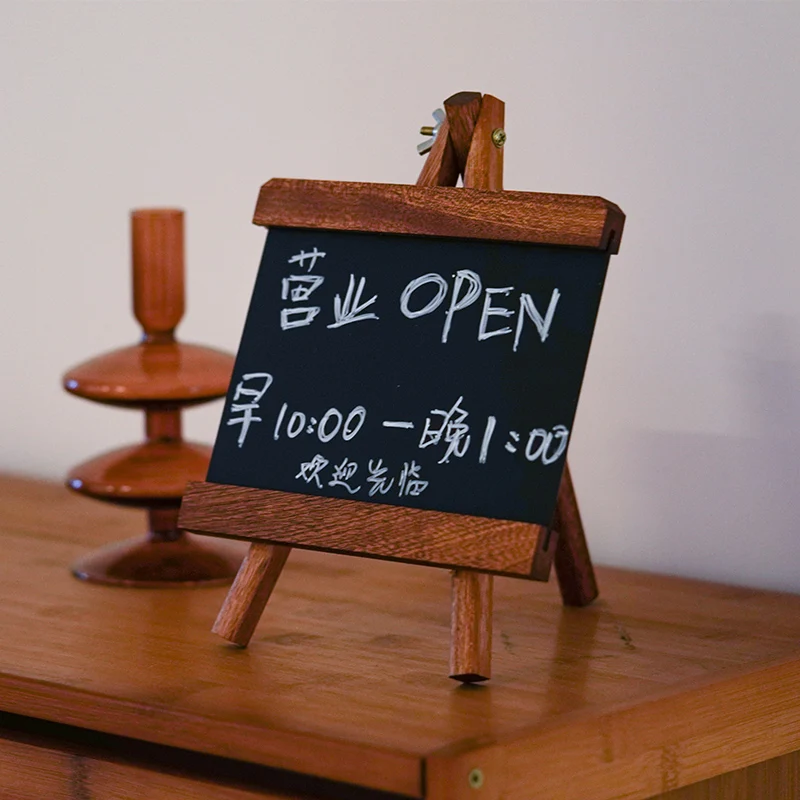 营业 OPEN
早10:00一晚1:00
欢迎光临